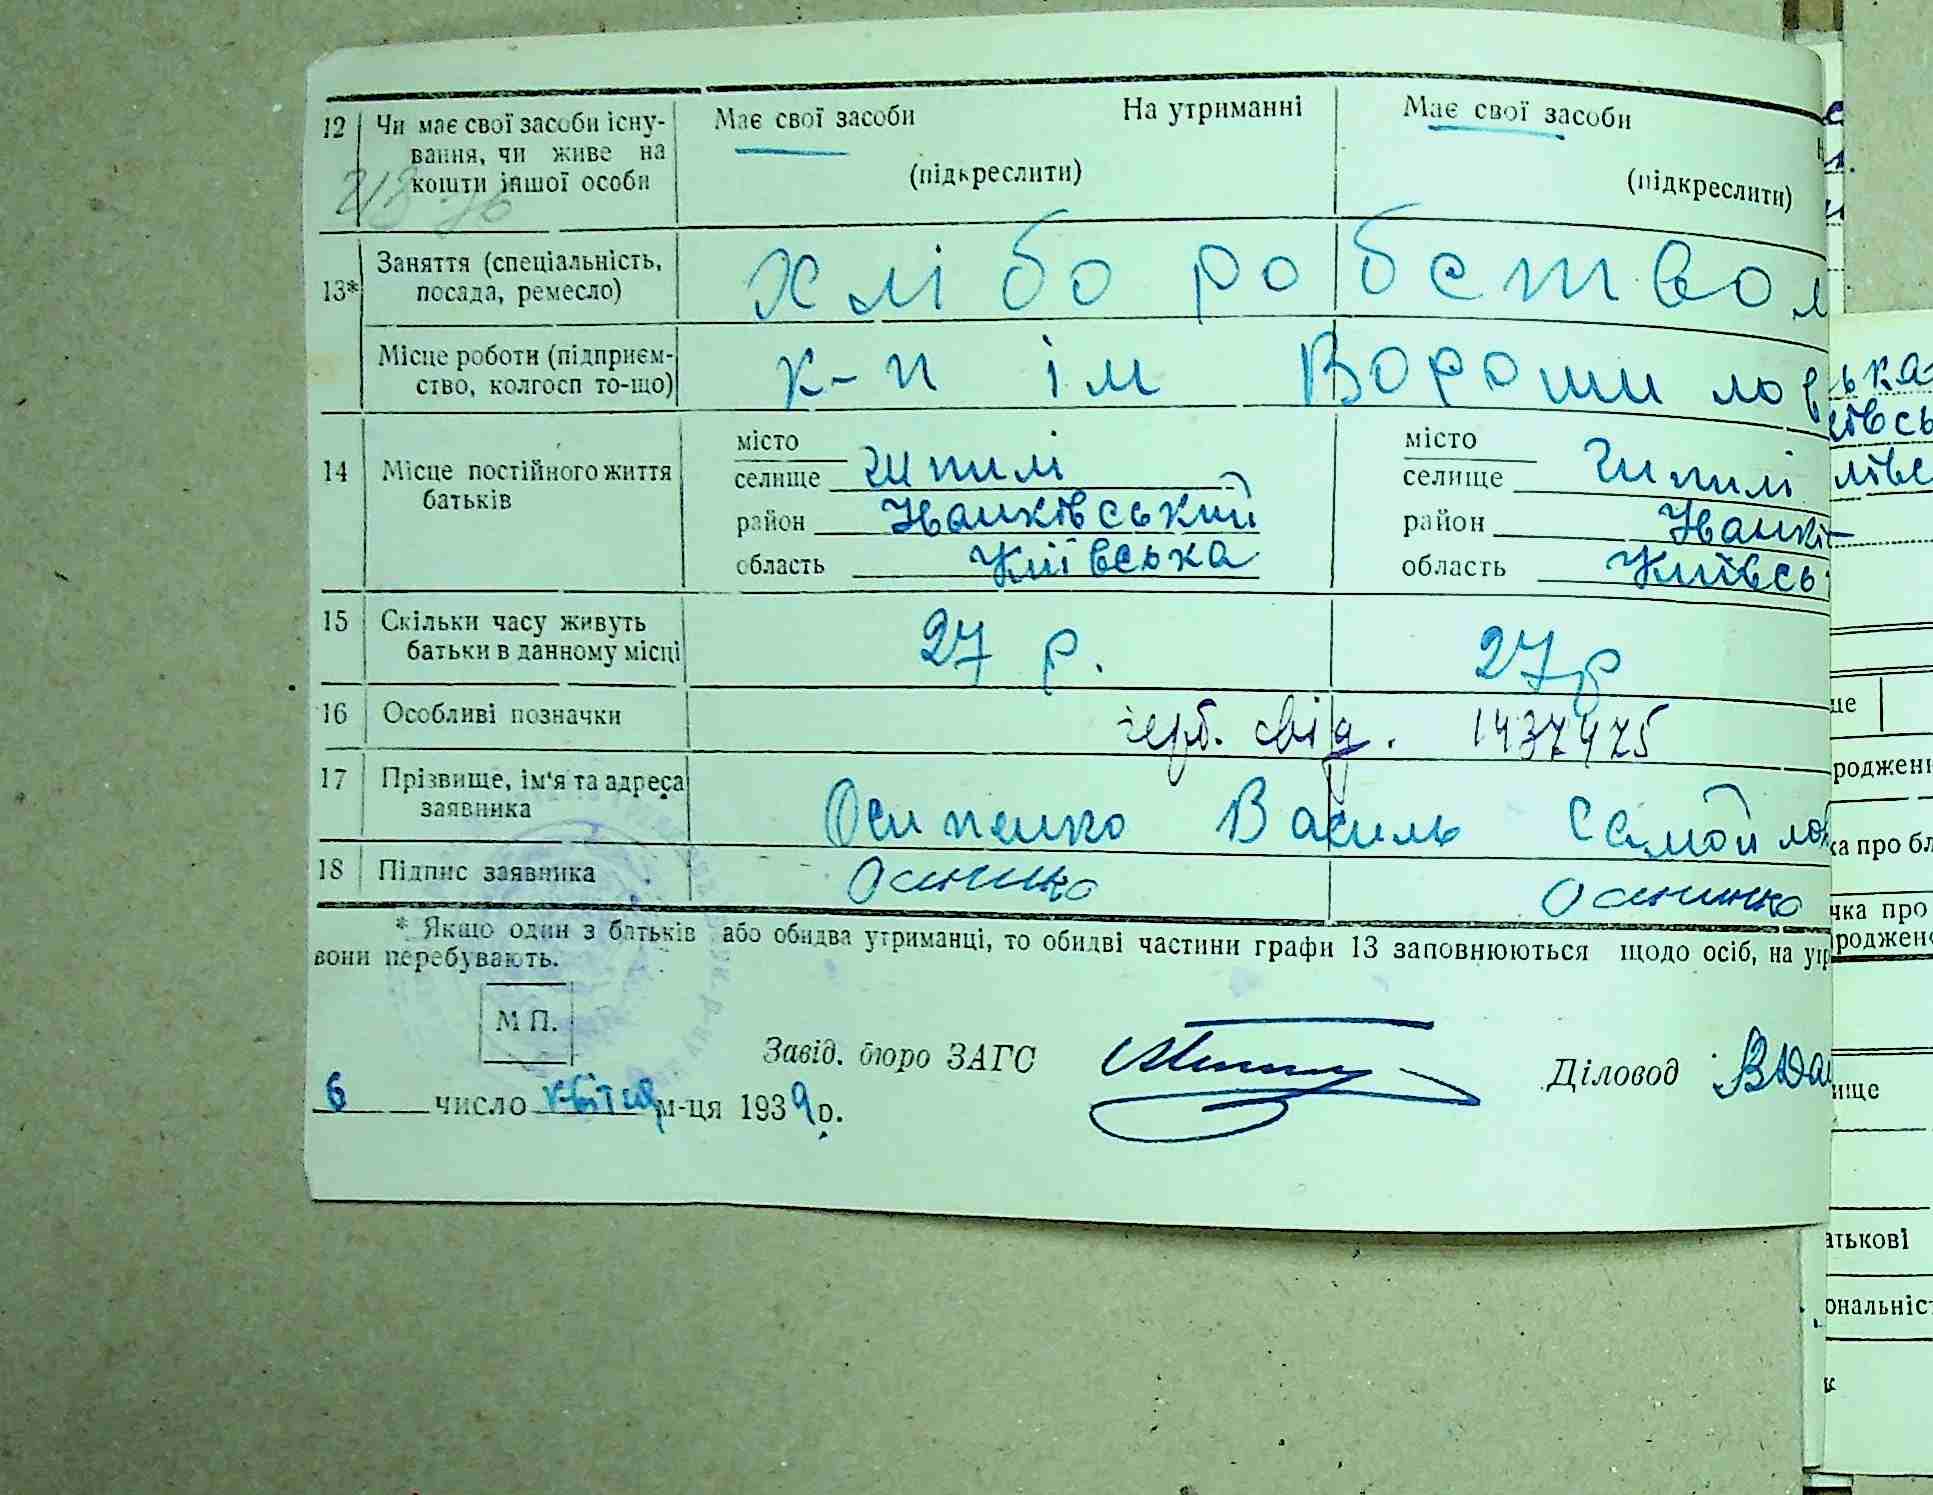 12 Чи має свої засоби існу- Має свої засоби На утриманні Має свої засоби
вання, чи живе на
кошти іншої особи (підкреслити) (підкреслити)
13* Заняття (спеціальність,
посада, ремесло) хліборобством
Місце роботи (підприєм-
ство, колгосп то-що) к-п ім Ворошилов
14 Місце постійного життя
батьків
місто місто
селище Шпилі селище Шпилі
район Іванківський район Іванкі
область Київська область Київсь
15 Скільки часу живуть
батьки в данному місці 27 р. 27 р
16 Особливі позначки герб. свід. 1437475
17 Прізвище, ім'я та адреса
заявника Осипенко Василь Самойлов
18 Підпис заявника Осипенко Осипенко
* Якщо один з батьків або обидва утриманці, то обидві частини графи 13 заповнюються щодо осіб, на утр
вони перебувають.
М П.
Завід. бюро ЗАГС Діловод
6 число квітня м-ця 1939 р.
ька
ківсь
ще
родженн
ка про бл
чка про
родженн
ище
атькові
ональніс